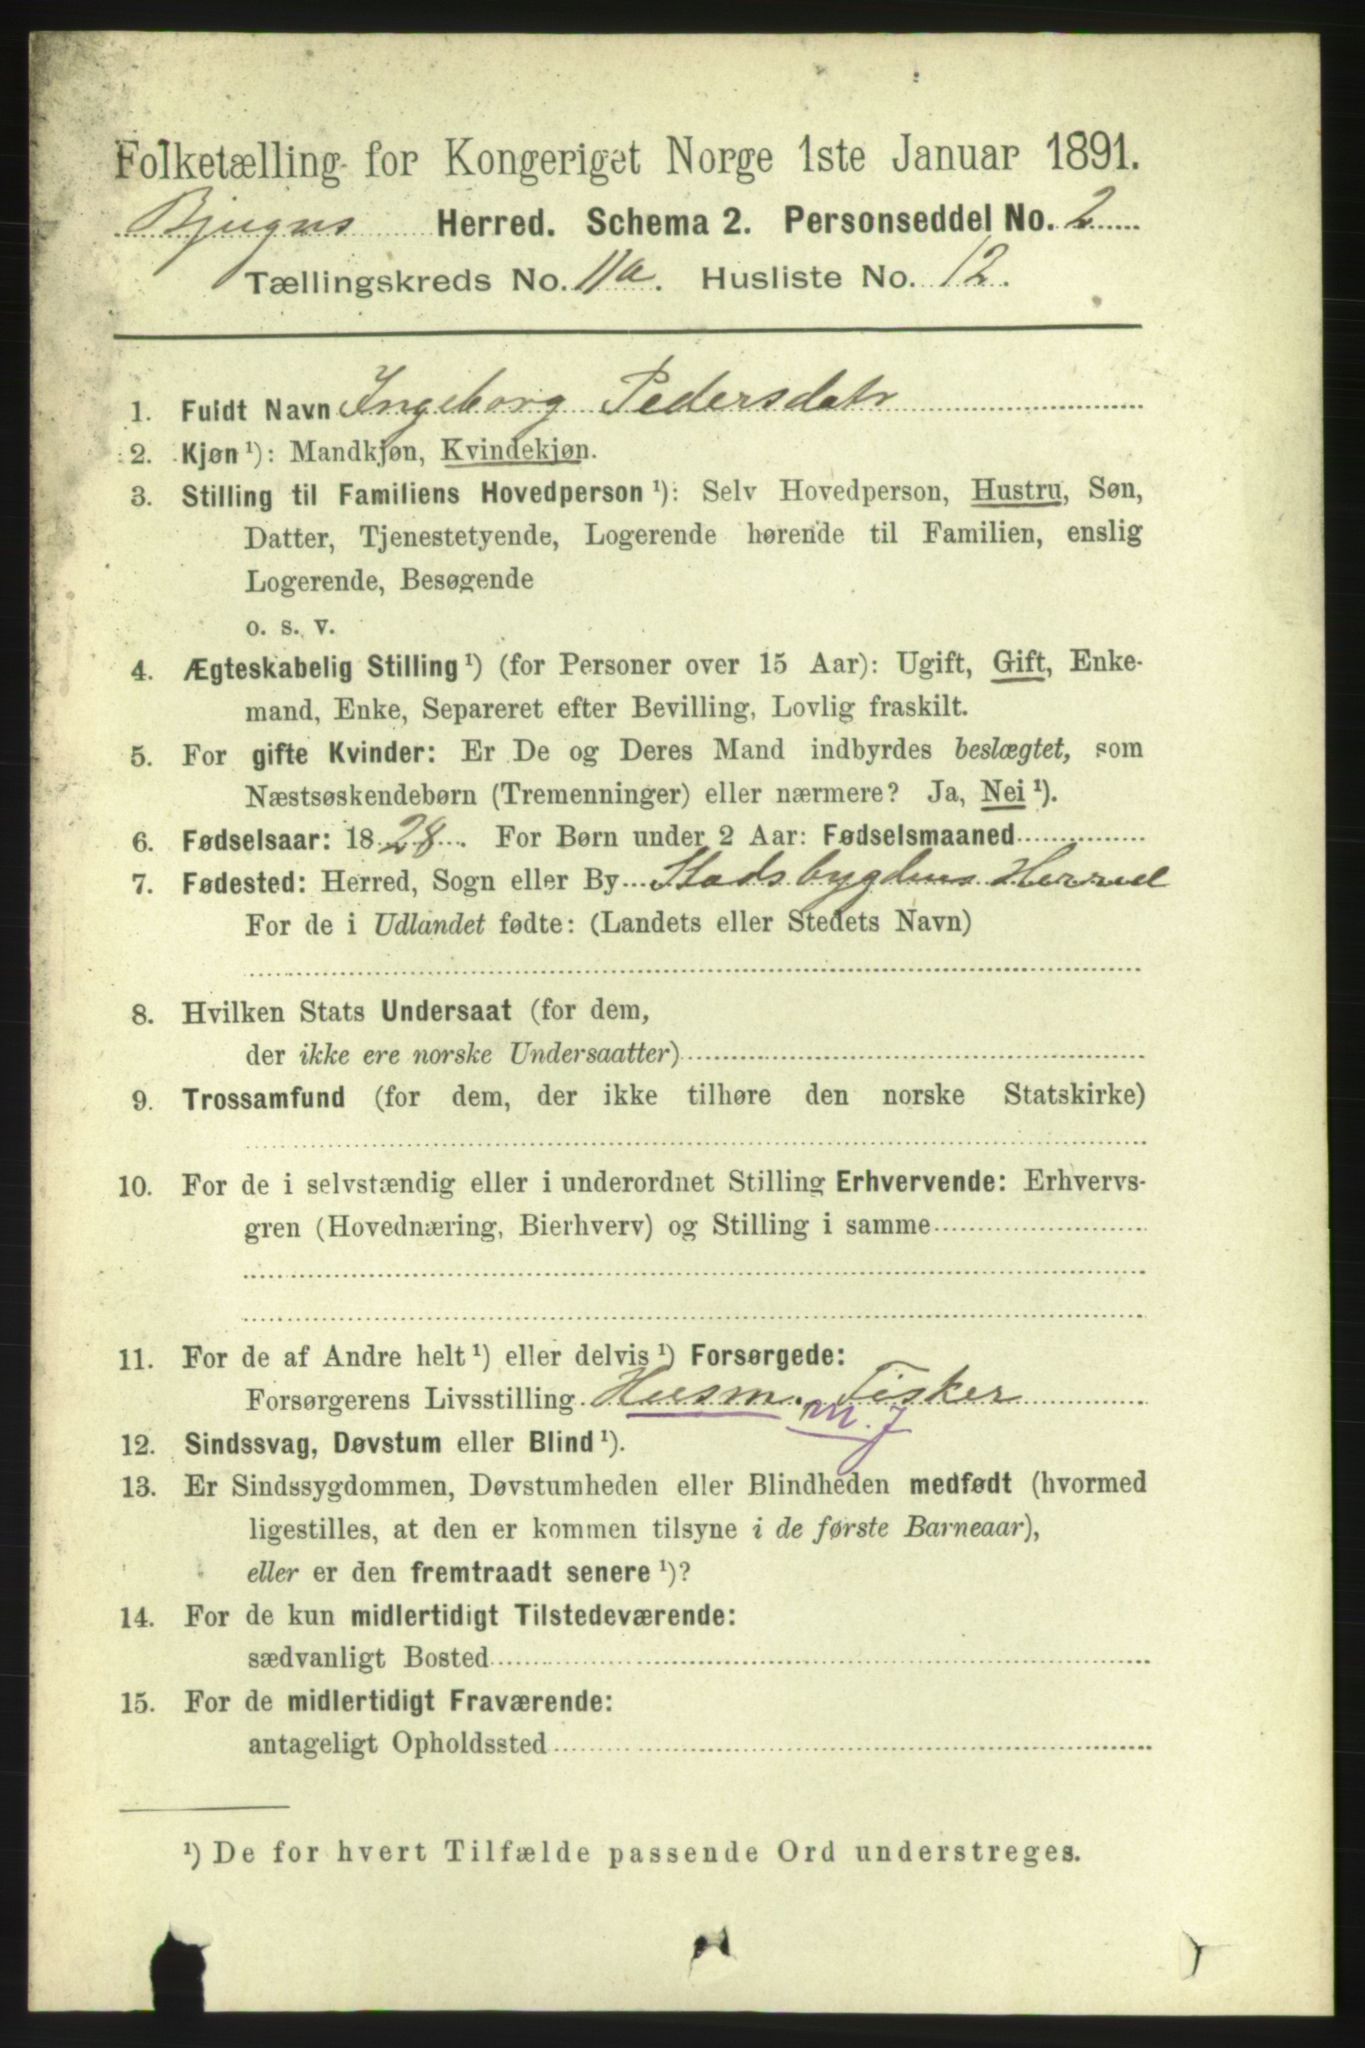 Folketælling for Kongeriget Norge 1ste Januar 1891.
Bjugns Herred. Schema 2. Personseddel No. 2
Tællingskreds No. 11a. Husliste No. 12.
1. Fuldt Navn Ingeborg Pedersdatr
2. Kjøn ¹): Mandkjøn, Kvindekjøn.
3. Stilling til Familiens Hovedperson ¹): Selv Hovedperson, Hustru, Søn,
Datter, Tjenestetyende, Logerende hørende til Familien, enslig
Logerende, Besøgende
o. s. v.
4. Ægteskabelig Stilling ¹) (for Personer over 15 Aar): Ugift, Gift, Enke-
mand, Enke, Separeret efter Bevilling, Lovlig fraskilt.
5. For gifte Kvinder: Er De og Deres Mand indbyrdes beslægtet, som
Næstsøskendebørn (Tremenninger) eller nærmere? Ja, Nei ¹).
6. Fødselsaar: 1828. For Børn under 2 Aar: Fødselsmaaned
7. Fødested: Herred, Sogn eller By Stadsbygdens Herred
For de i Udlandet fødte: (Landets eller Stedets Navn)
8. Hvilken Stats Undersaat (for dem,
der ikke ere norske Undersaatter)
9. Trossamfund (for dem, der ikke tilhøre den norske Statskirke)
10. For de i selvstændig eller i underordnet Stilling Erhvervende: Erhvervs-
gren (Hovednæring, Bierhverv) og Stilling i samme
11. For de af Andre helt ¹) eller delvis ¹) Forsørgede:
Forsørgerens Livsstilling Husm. Fisker
m. j
12. Sindssvag, Døvstum eller Blind ¹).
13. Er Sindssygdommen, Døvstumheden eller Blindheden medfødt (hvormed
ligestilles, at den er kommen tilsyne i de første Barneaar),
eller er den fremtraadt senere ¹)?
14. For de kun midlertidigt Tilstedeværende:
sædvanligt Bosted
15. For de midlertidigt Fraværende:
antageligt Opholdssted
¹) De for hvert Tilfælde passende Ord understreges.